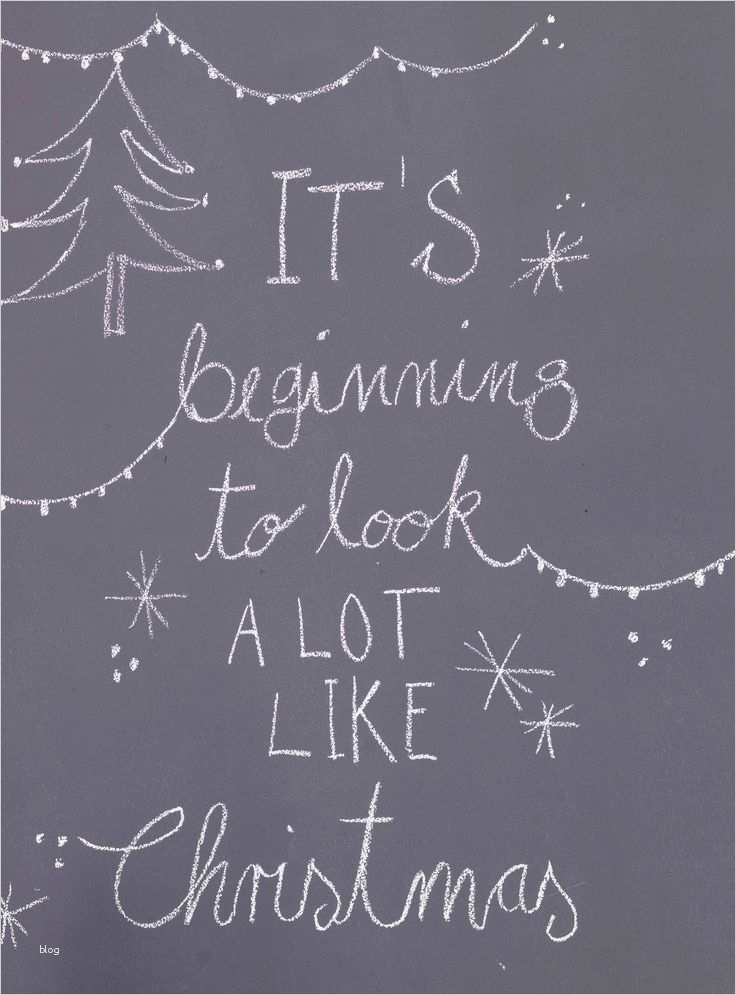 IT'S
beginning
to look
A LOT
LIKE
Christmas
blog